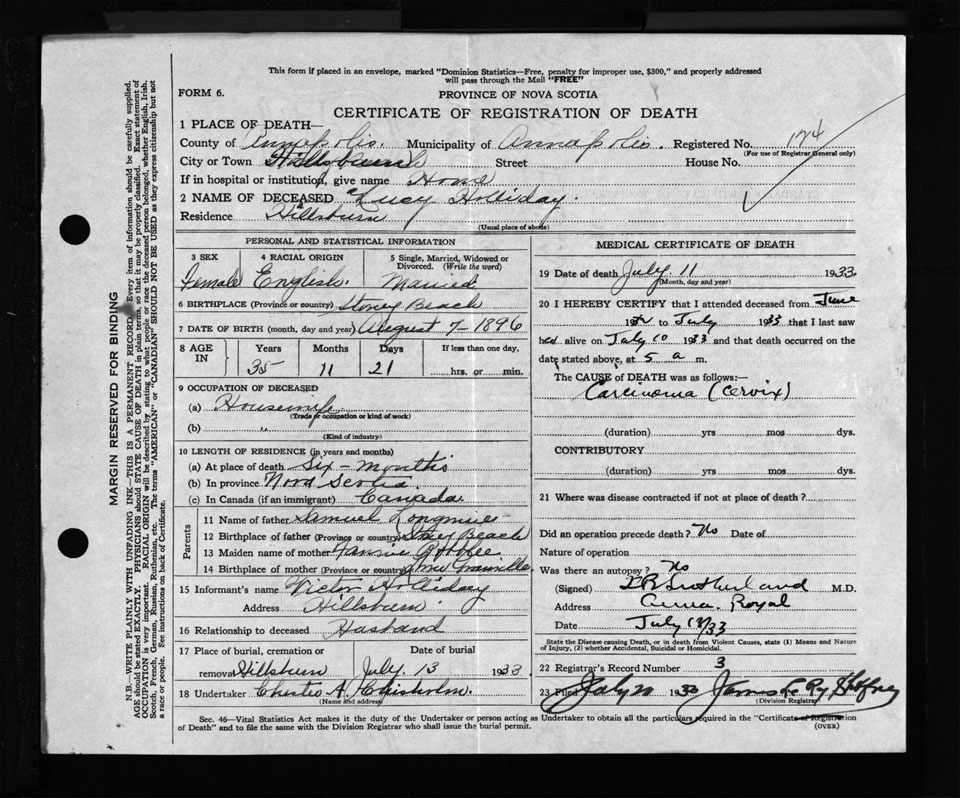 This form if placed in an envelope, marked "Dominion Statistics—Free, penalty for improper use, $300," and properly addressed
will pass through the Mail "FREE"
FORM 6.
PROVINCE OF NOVA SCOTIA
CERTIFICATE OF REGISTRATION OF DEATH
1 PLACE OF DEATH—
County of Annapolis. Municipality of Annapolis. Registered No. 174
(For use of Registrar General only)
City or Town Hillsburn Street House No.
If in hospital or institution, give name Home
2 NAME OF DECEASED Lucy Holliday.
Residence Hillsburn
(Usual place of abode)
PERSONAL AND STATISTICAL INFORMATION
3 SEX 4 RACIAL ORIGIN 5 Single, Married, Widowed or
Divorced. (Write the word)
Female English. Married
6 BIRTHPLACE (Province or country) Stoney Beach
7 DATE OF BIRTH (month, day and year) August 7-1896
8 AGE IN Years Months Days If less than one day,
35 11 21 hrs. or min.
9 OCCUPATION OF DECEASED
(a) Housewife
(Trade or occupation or kind of work)
(b) "
(Kind of industry)
10 LENGTH OF RESIDENCE (in years and months)
(a) At place of death Six-Months
(b) In province Nova Scotia
(c) In Canada (if an immigrant) Canada.
Parents
11 Name of father Samuel Longmier
12 Birthplace of father (Province or country) Stoney Beach
13 Maiden name of mother Fannie
14 Birthplace of mother (Province or country) Granville
15 Informant's name Victor Holliday
Address Hillsburn.
16 Relationship to deceased Husband
17 Place of burial, cremation or Date of burial
removal Hillsburn July 13 1933
18 Undertaker Chester A. Chisholm.
(Name and address)
MEDICAL CERTIFICATE OF DEATH
19 Date of death July 11 1933
(Month, day and year)
20 I HEREBY CERTIFY that I attended deceased from June
19 to July 1933 that I last saw
her alive on July 10 1933 and that death occurred on the
date stated above, at 5 a m.
The CAUSE of DEATH was as follows:—
Carcinoma (Cervix)
(duration) yrs mos dys.
CONTRIBUTORY
(duration) yrs mos dys.
21 Where was disease contracted if not at place of death?
Did an operation precede death? No Date of
Nature of operation
Was there an autopsy? No
(Signed) Sutherland M.D.
Address Anna. Royal
Date July 18/33
State the Disease causing Death, or in death from Violent Causes, state (1) Means and Nature
of Injury, (2) whether Accidental, Suicidal or Homicidal.
22 Registrar's Record Number 3
23 Filed July 20 1933 James
(Division Registrar)
Sec. 46—Vital Statistics Act makes it the duty of the Undertaker or person acting as Undertaker to obtain all the particulars required in the "Certificate of Registration
of Death" and to file the same with the Division Registrar who shall issue the burial permit.
(OVER)
MARGIN RESERVED FOR BINDING
N.B.—WRITE PLAINLY WITH UNFADING INK—THIS IS A PERMANENT RECORD. Every item of information should be carefully supplied.
AGE should be stated EXACTLY. PHYSICIANS should STATE CAUSE OF DEATH in plain terms, so that it may be properly classified. Exact statement of
OCCUPATION is very important. RACIAL ORIGIN will be described by stating to what people or race the deceased person belonged, whether English, Irish,
Scotch, French, German, Russian, Ruthenian, etc. The terms "AMERICAN" or "CANADIAN" SHOULD NOT BE USED as they express citizenship but not
a race or people. See instructions on back of Certificate.